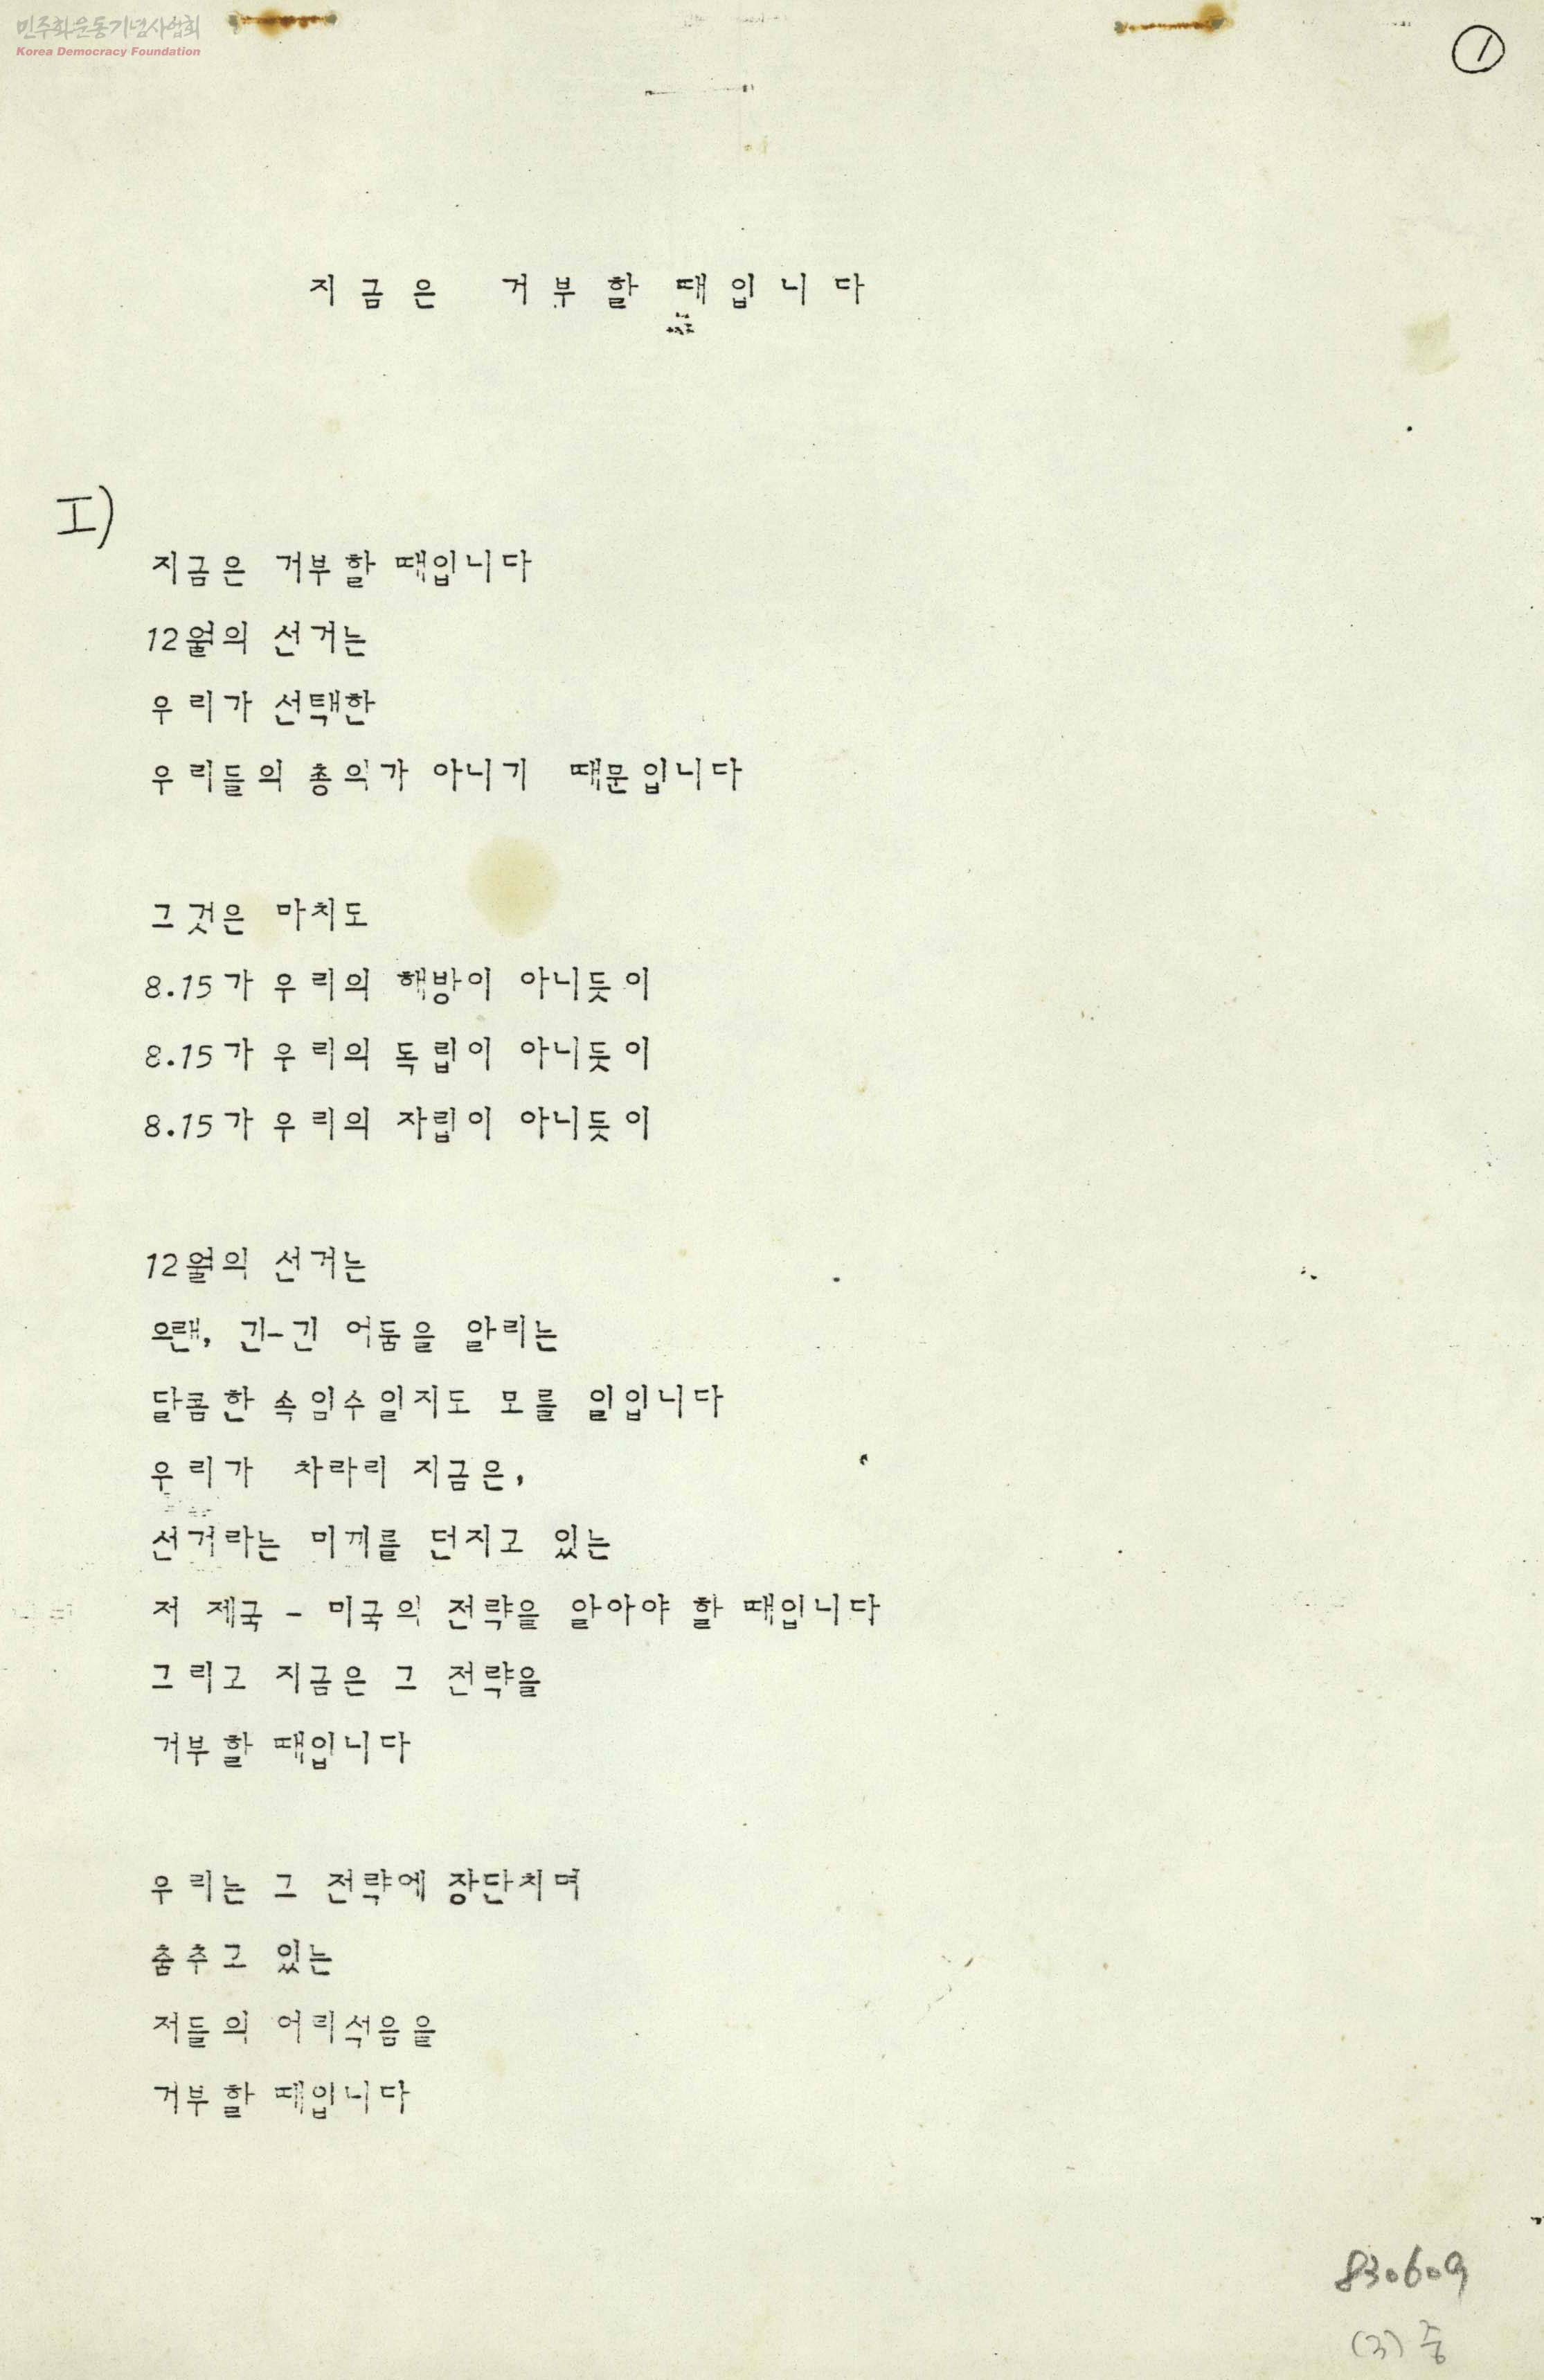 민주화운동기념사업회
Korea Democracy Foundation
①
지금은 거부할 때입니다
I)
지금은 거부할 때입니다
12월의 선거는
우리가 선택한
우리들의 총의가 아니기 때문입니다
그것은 마치도
8.15가 우리의 해방이 아니듯이
8.15가 우리의 독립이 아니듯이
8.15가 우리의 자립이 아니듯이
12월의 선거는
오랜, 긴-긴 어둠을 알리는
달콤한 속임수일지도 모를 일입니다
우리가 차라리 지금은,
선거라는 미끼를 던지고 있는
저 제국 - 미국의 전략을 알아야 할 때입니다
그리고 지금은 그 전략을
거부할 때입니다
우리는 그 전략에 장단치며
춤추고 있는
저들의 어리석음을
거부할 때입니다
830609
(3) 중